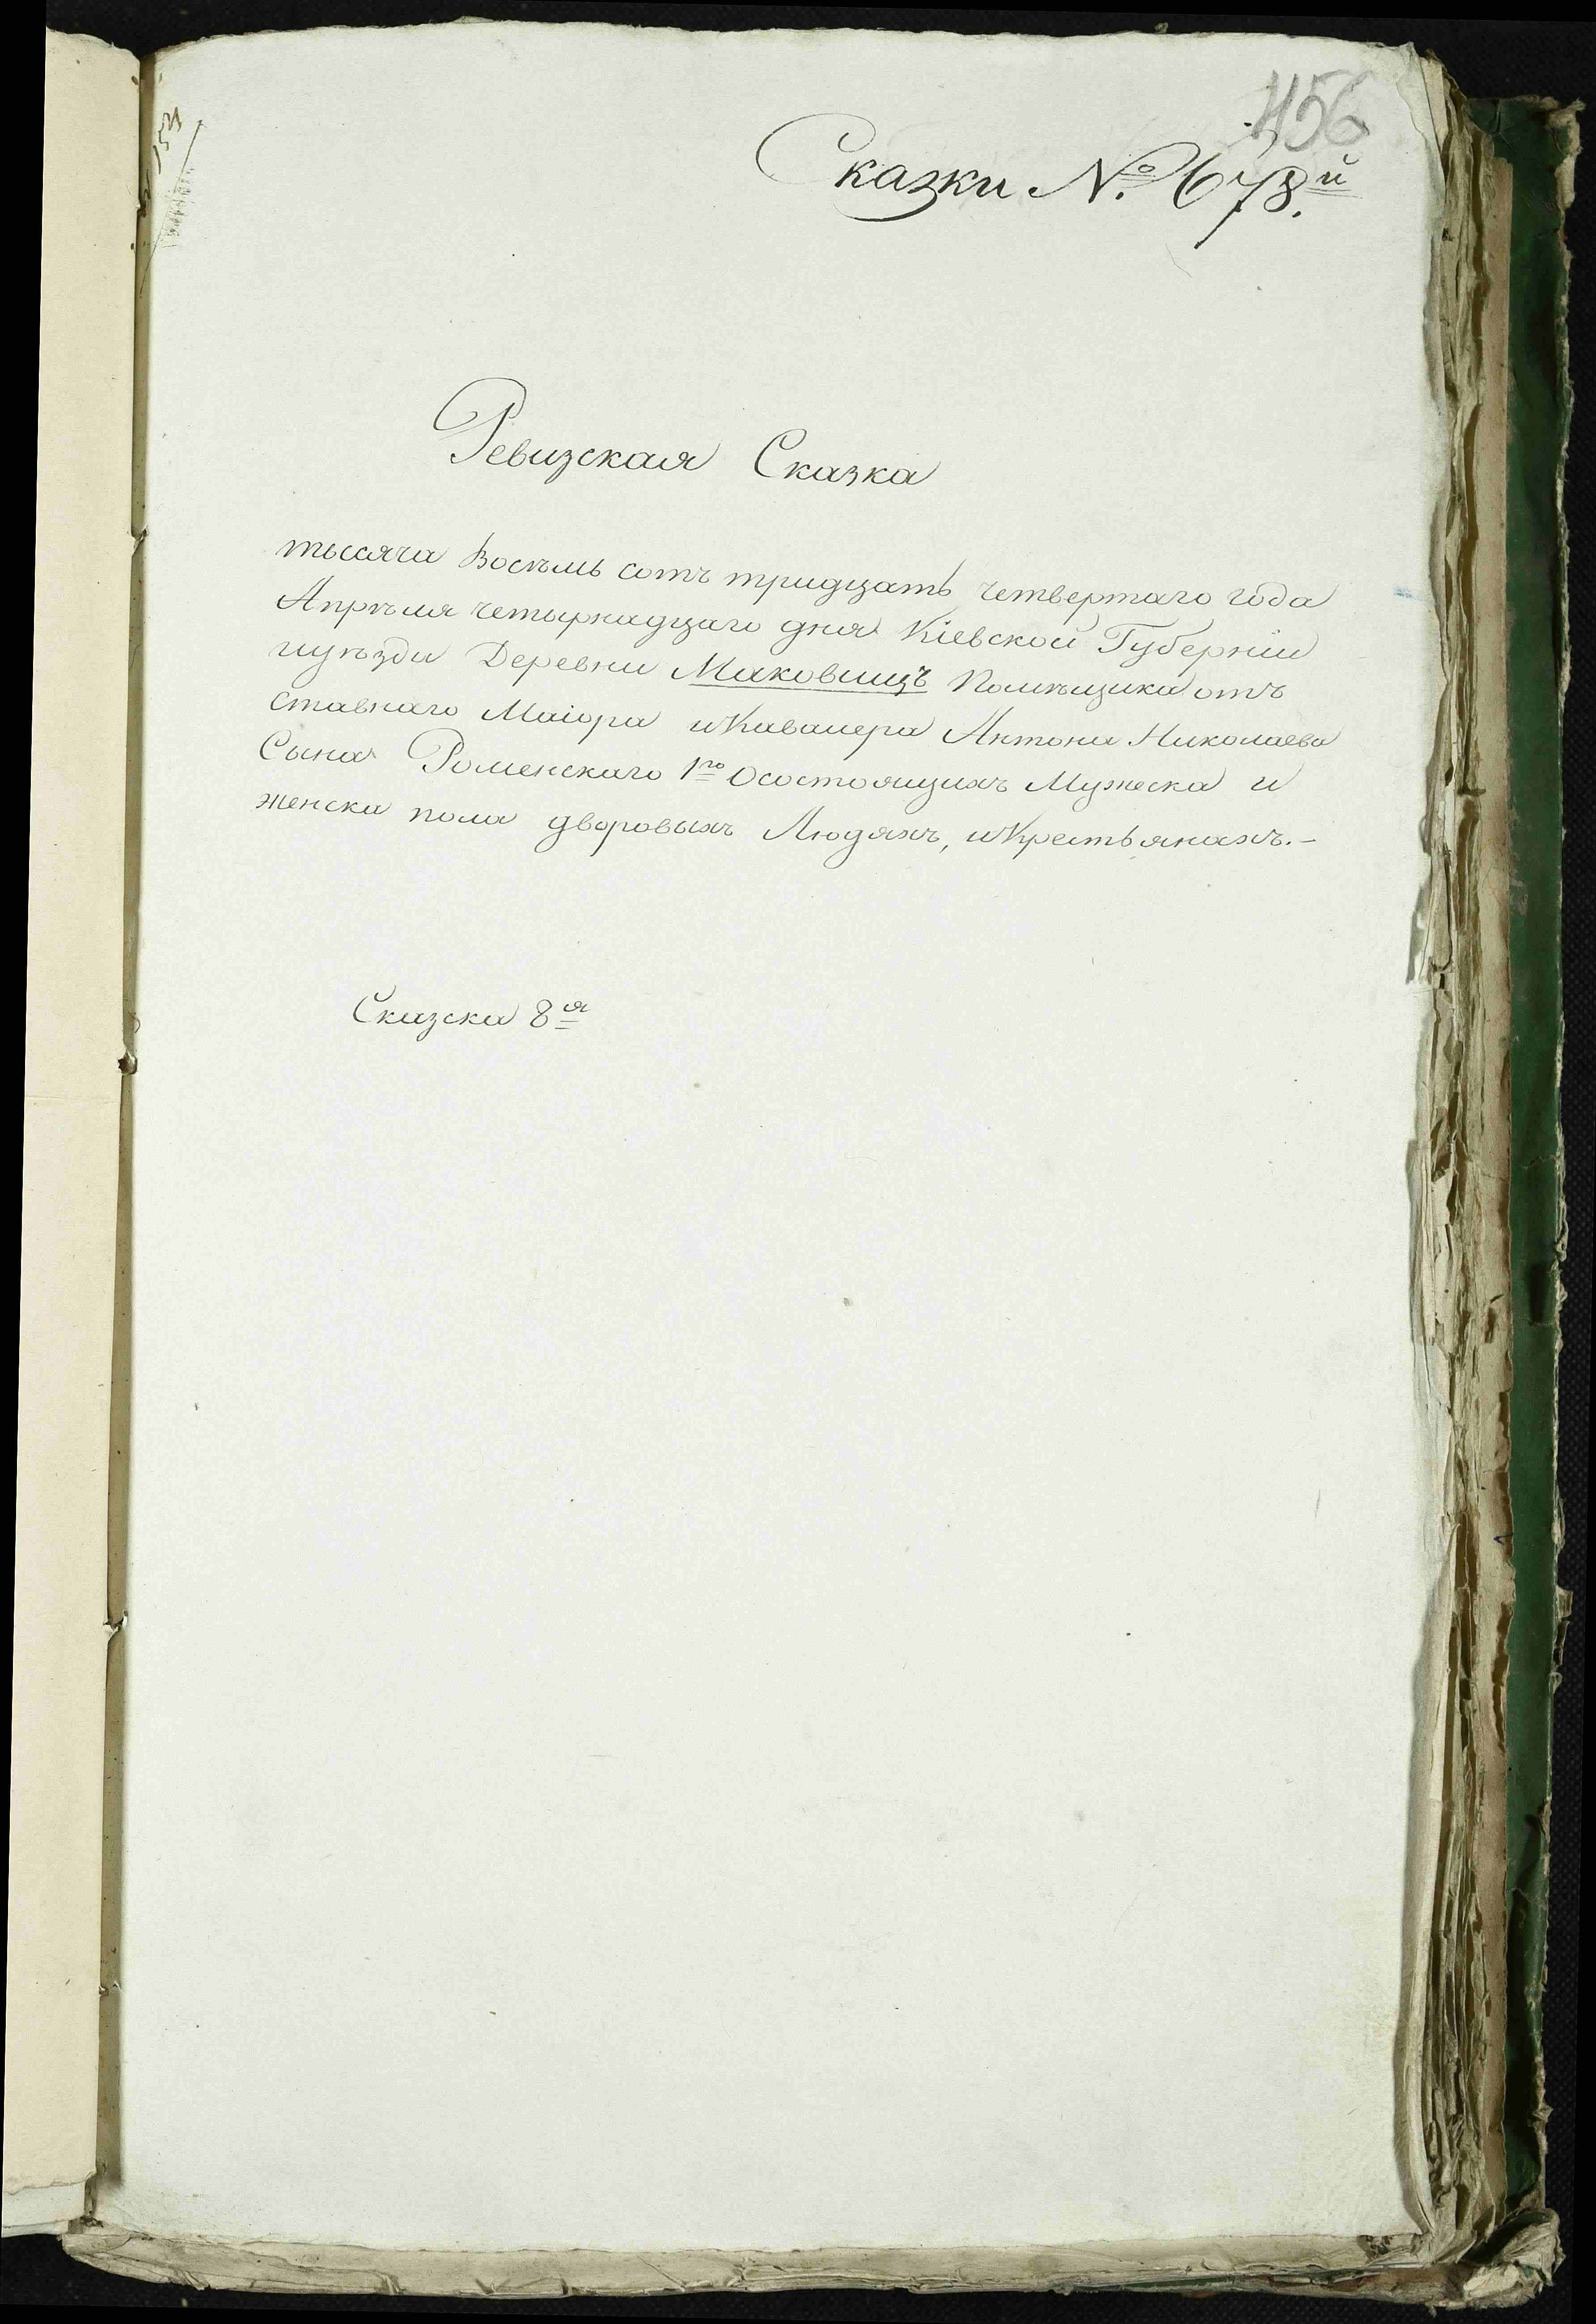 456
Сказки №. 678.й
Ревизская Сказка
тысяча Восемь сотъ тридцать четвертаго года
Апрѣля четырнадцаго дня Кіевской Губерніи
иуѣзда Деревни Маковищъ Помѣщика отъ
ставнаго Маіора иКавалера Антона Николаева
Сына Роменскаго 1го Осостоящихъ Мужеска и
женска пола дворовыхъ Людяхъ, иКрестьянахъ.-
Сказска 8я